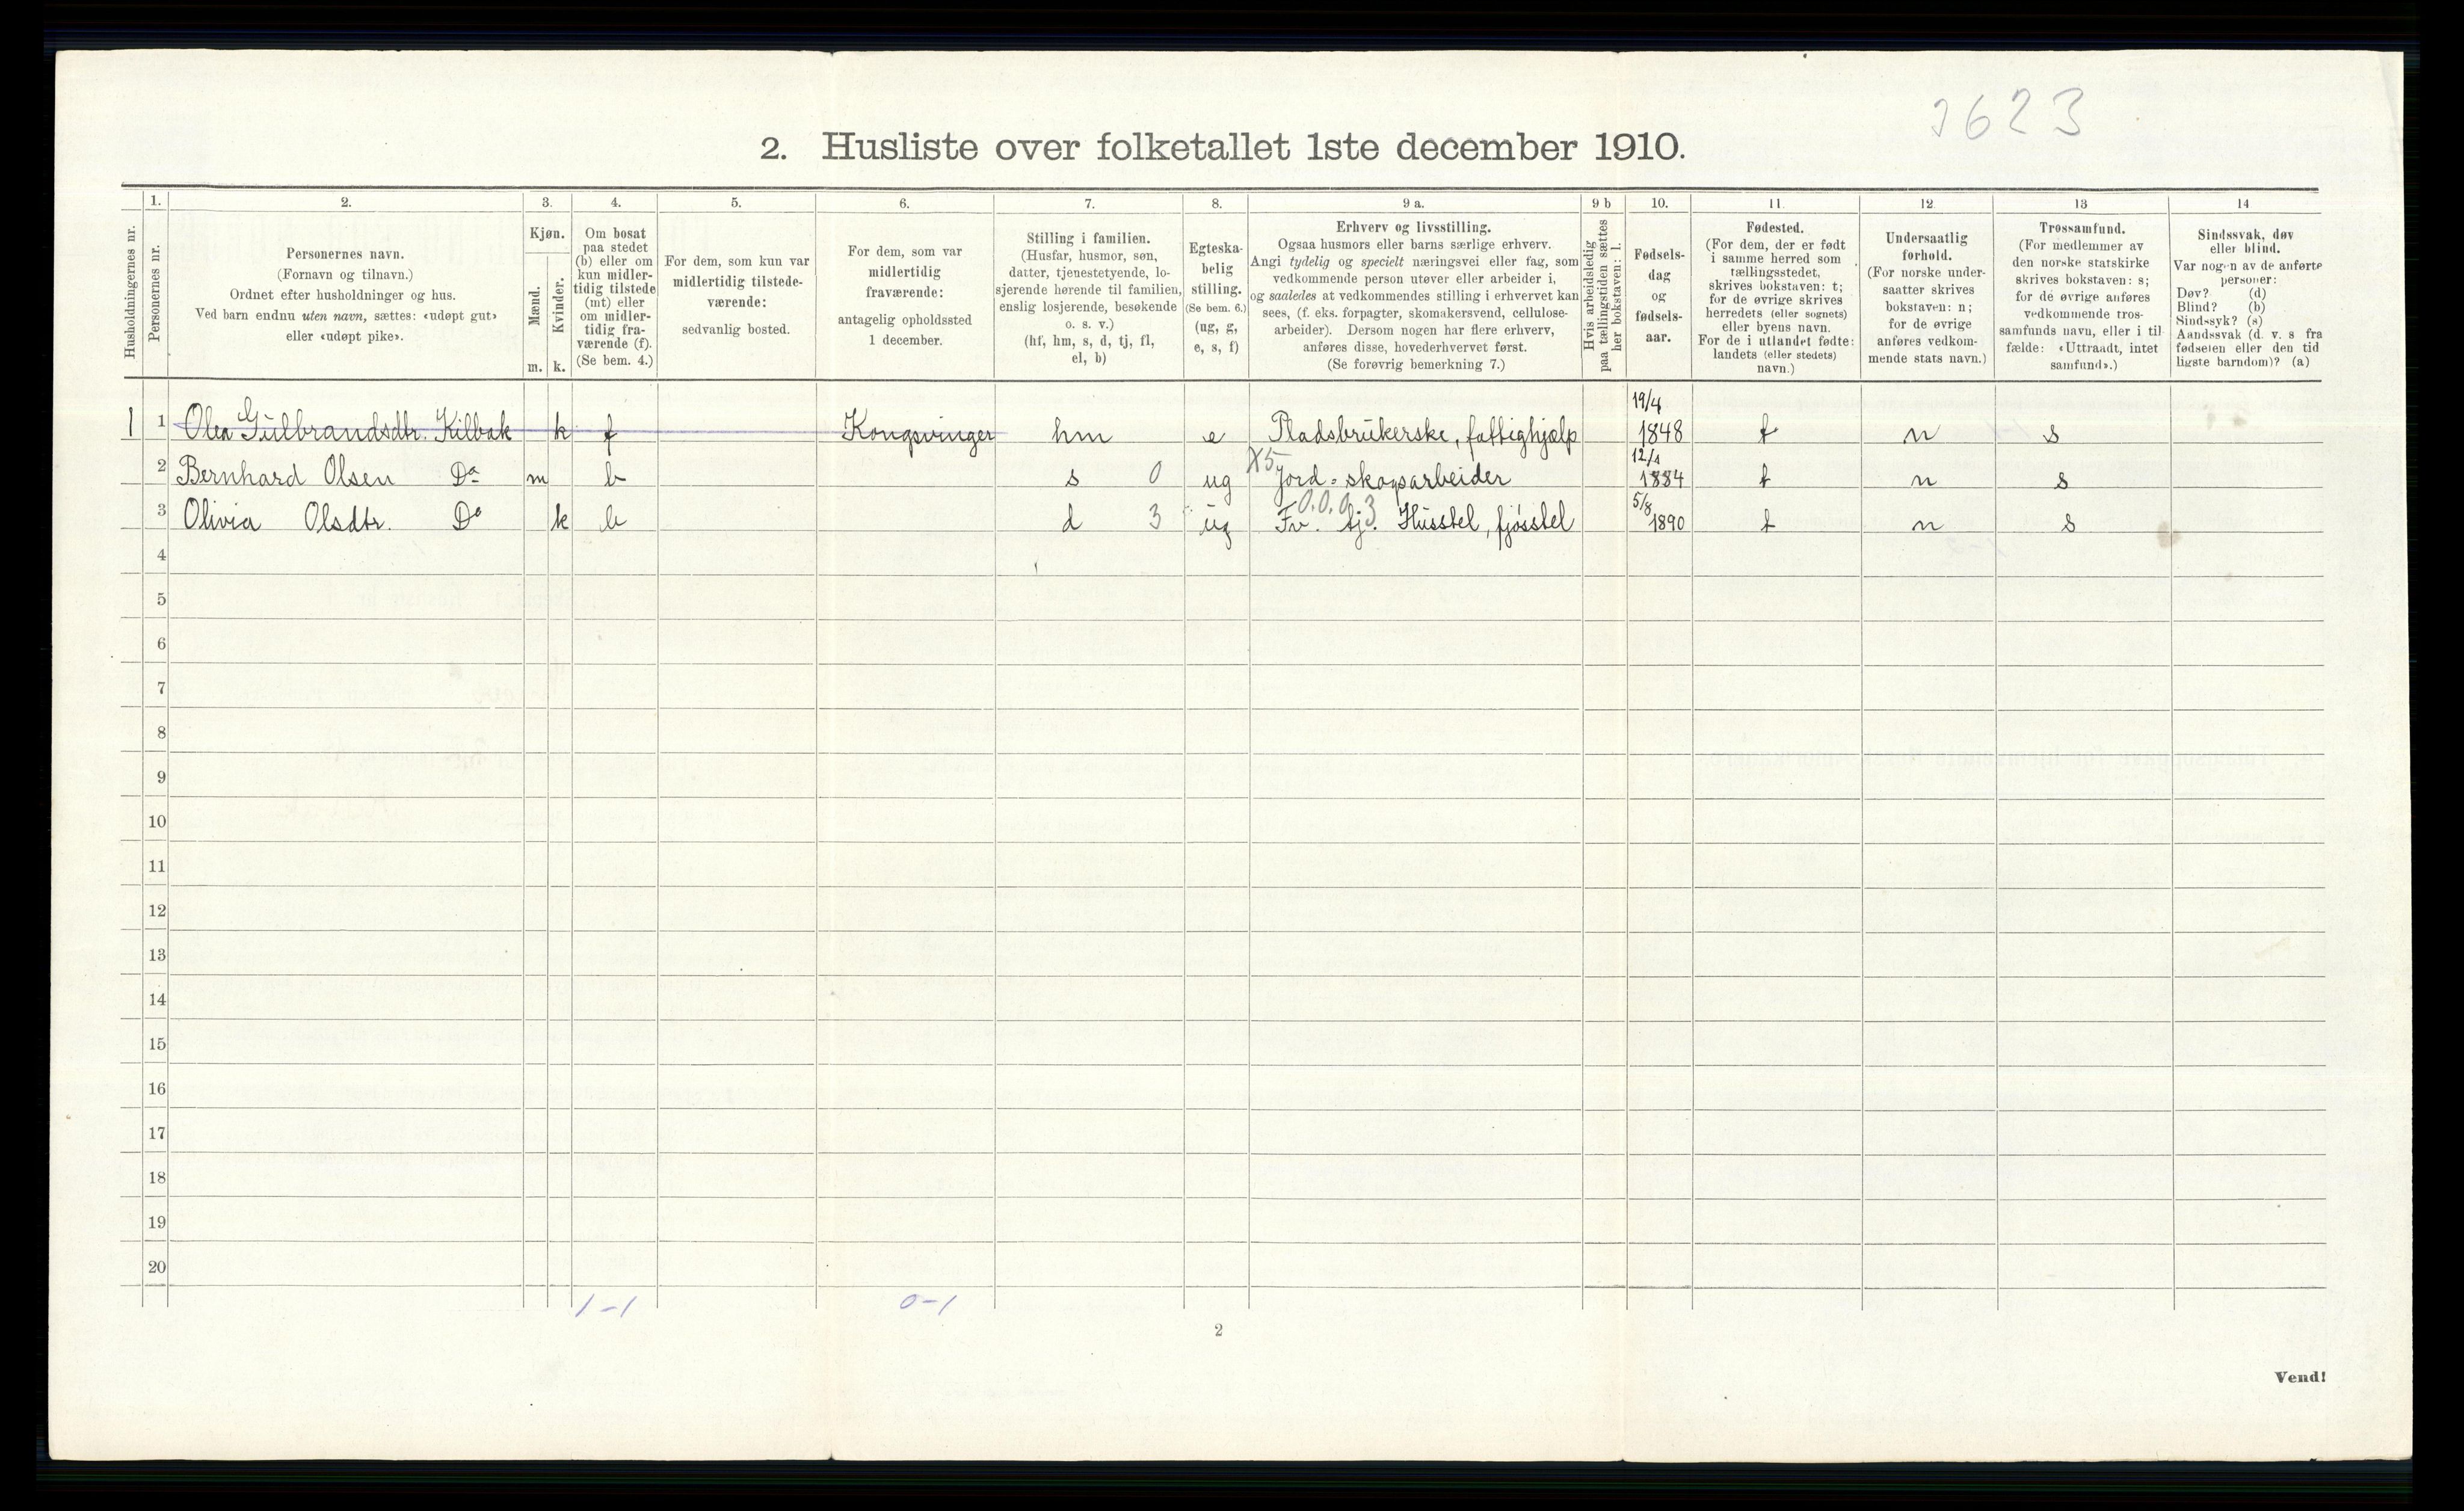 3623
2. Husliste over folketallet 1ste december 1910.
Husholdningernes nr.
1.
Personernes nr.
2.
Personernes navn.
(Fornavn og tilnavn.)
Ordnet efter husholdninger og hus.
Ved barn endnu uten navn, sættes: «udøpt gut»
eller «udøpt pike».
3.
Kjøn.
Mænd.
Kvinder.
m. k.
4.
Om bosat
paa stedet
(b) eller om
kun midler-
tidig tilstede
(mt) eller
om midler-
tidig fra-
værende (f).
(Se bem. 4.)
5.
For dem, som kun var
midlertidig tilstede-
værende:
sedvanlig bosted.
6.
For dem, som var
midlertidig
fraværende:
antagelig opholdssted
1 december.
7.
Stilling i familien.
(Husfar, husmor, søn,
datter, tjenestetyende, lo-
sjerende hørende til familien,
enslig losjerende, besøkende
o. s. v.)
(hf, hm, s, d, tj, fl,
el, b)
8.
Egteska-
belig
stilling.
(Se bem. 6.)
(ug, g,
e, s, f)
9 a.
Erhverv og livsstilling.
Ogsaa husmors eller barns særlige erhverv.
Angi tydelig og specielt næringsvei eller fag, som
vedkommende person utøver eller arbeider i,
og saaledes at vedkommendes stilling i erhvervet kan
sees, (f. eks. forpagter, skomakersvend, cellulose-
arbeider). Dersom nogen har flere erhverv,
anføres disse, hovederhvervet først.
(Se forøvrig bemerkning 7.)
9 b
Hvis arbeidsledig
paa tællingstiden sættes
her bokstaven: l.
10.
Fødsels-
dag
og
fødsels-
aar.
11.
Fødested.
(For dem, der er født
i samme herred som
tællingsstedet,
skrives bokstaven: t;
for de øvrige skrives
herredets (eller sognets)
eller byens navn.
For de i utlandet fødte:
landets (eller stedets)
navn.)
12.
Undersaatlig
forhold.
(For norske under-
saatter skrives
bokstaven: n;
for de øvrige
anføres vedkom-
mende stats navn.)
13
Trossamfund.
(For medlemmer av
den norske statskirke
skrives bokstaven: s;
for de øvrige anføres
vedkommende tros-
samfunds navn, eller i til-
fælde: «Uttraadt, intet
samfund».)
14
Sindssvak, døv
eller blind.
Var nogen av de anførte
personer:
Døv? (d)
Blind? (b)
Sindssyk? (s)
Aandssvak (d. v. s fra
fødselen eller den tid
ligste barndom)? (a)
1 1 Olea Gulbrandsdtr. Kilbak k f Kongsvinger hm e Pladsbrukerske, fattighjælp 19/4 1848 t n s
2 Bernhard Olsen Do m b s 0 ug X5 Jord- skogsarbeider 12/1 1884 t n s
3 Olivia Olsdtr. Do k b d 3 ug 0.0.0.3 Fv. tj. Husstel, fjøsstel 5/8 1890 t n s
4
5
6
7
8
9
10
11
12
13
14
15
16
17
18
19
20
1-1 0-1
2
Vend!